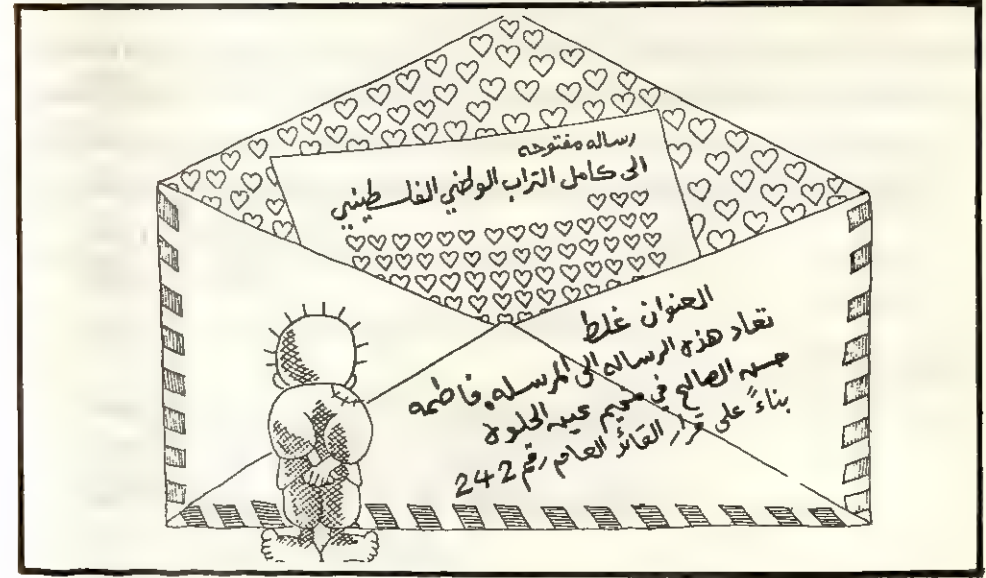 رساله مفتوحه
الى كامل التراب الوطني الفلسطيني
العنوان غلط
تعاد هذه الرساله الى المرسله، فاطمه
حسن الصالح في مخيم عين الحلوه
بناءً على قرار القائد العام رقم 242